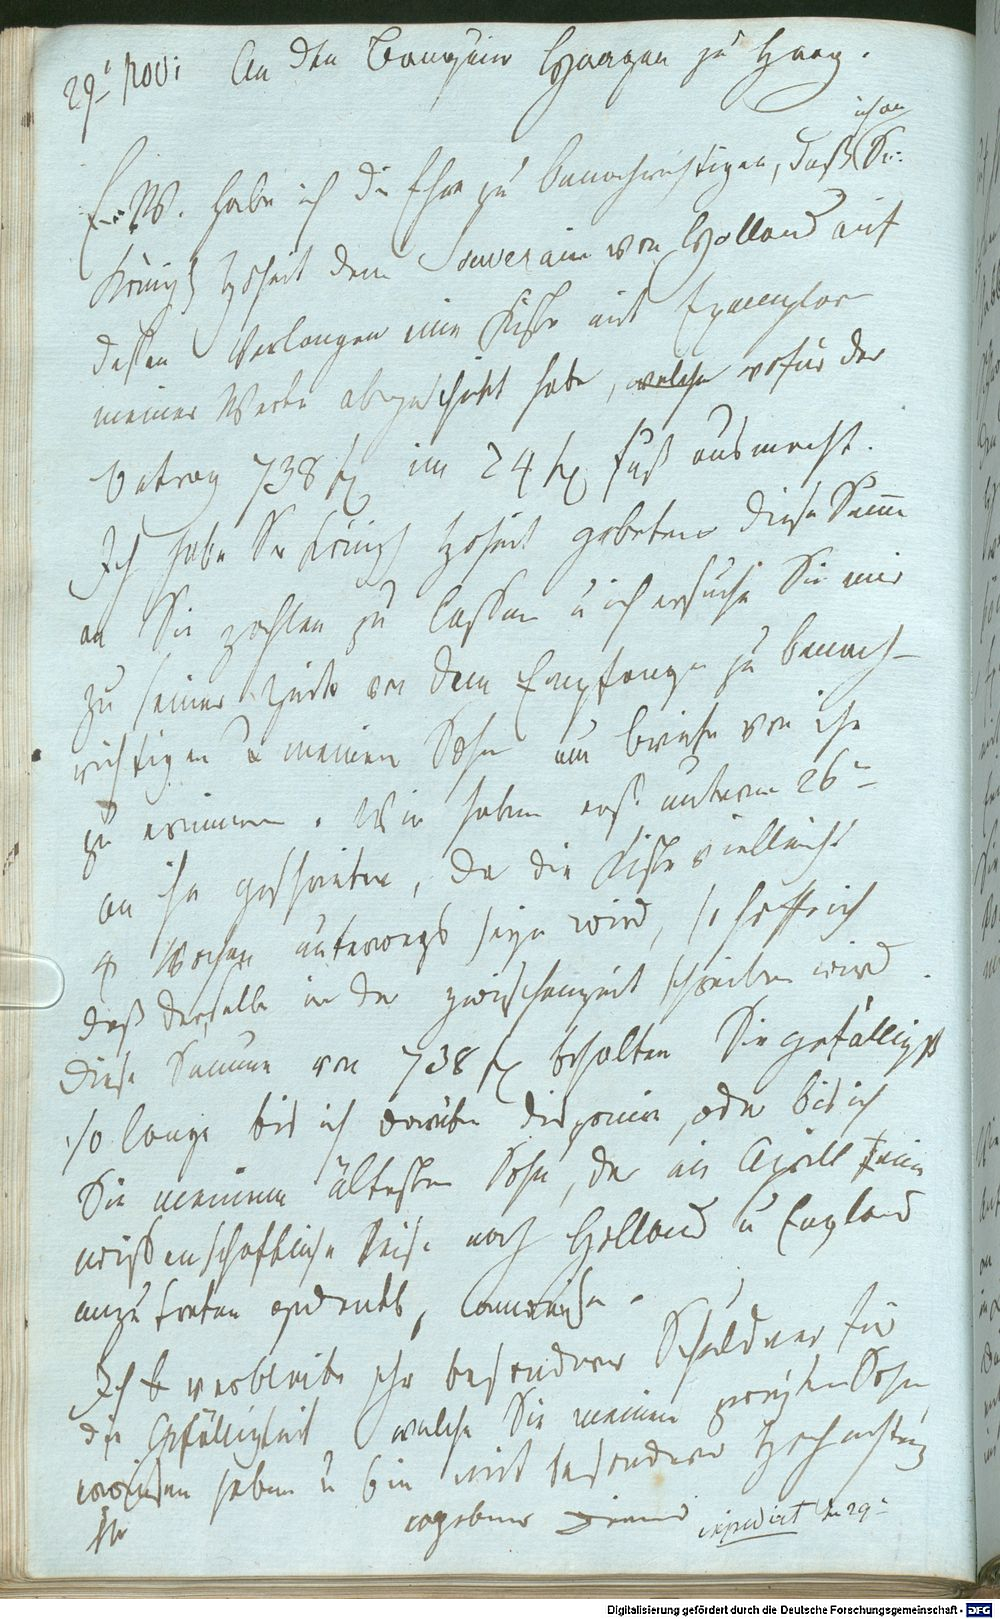 29t. Novi An den Banquier Haagen zu Haag.
ich an
E. W. habe ich die Ehre zu benachrichtigen, daß Sr.
Königl Hoheit dem Souverain von Holland auf
dessen Verlangen eine Kiste mit Exemplar
meiner Werke abgeschickt habe, welche wofür der
Betrag 738 fl im 24 fl Fuß ausmacht.
Ich habe Sr Königl Hoheit gebeten diese Summe
an Sie zahlen zu lassen u ich ersuche Sie mir
zu seiner Zeit von dem Empfange zu benach-
richtigen u meinen Sohn um briefe von ihm
zu erinnern. Wir haben erst unterm 26n
an ihn geschrieben, da die Kiste vielleicht
4 Wochen unterwegs seyn wird, so hoffe ich
daß derselbe in der Zwischenzeit schreiben wird.
diese Summe von 738 fl behalten Sie gefälligst
so lange bis ich darüber disponire, oder bis ich
Sie meinem ältesten Sohn, der im Aprill eine
wissenschaftliche Reise nach Holland u England
anzutreten gedenkt, anweise.
Ich verbleibe Ihr besonderer Schuldner für
die Gefälligkeit welche Sie meinem zweyten Sohn
erwiesen haben u bin mit besonderer Hochachtung
Ihr ergebener Diener expedirt den 29n
Digitalisierung gefördert durch die Deutsche Forschungsgemeinschaft - DFG